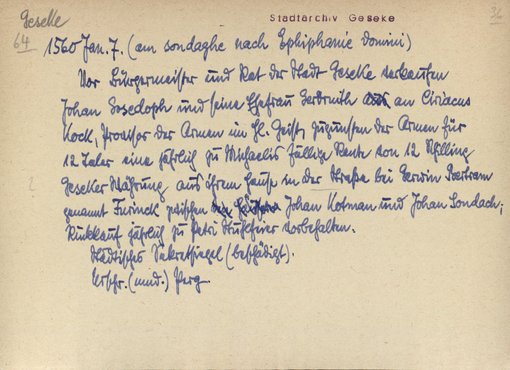 Geseke
64
Stadtarchiv Geseke
36
1560 Jan. 7. (am sondaghe nach Ephiphanie Domini)
Vor Bürgermeister und Rat der Stadt Geseke verkaufen
Johan Gosedoph und seine Ehefrau Gerdruth an Ciriacus
Kock, Provisor der Armen im Hl. Geist, zugunsten der Armen für
12 Taler eine jährlich zu Michaelis fällige Rente von 12 Schilling
Geseker Währung aus ihrem Hause in der Straße bei Gerwin Bertram
genannt Fuirick zwischen Johan Kotman und Johan Sondach;
Rückkauf jährlich zu Petri Stuhlfeier vorbehalten.
Städtisches Sekretsiegel (beschädigt).
Urschr. (nied.) Perg.